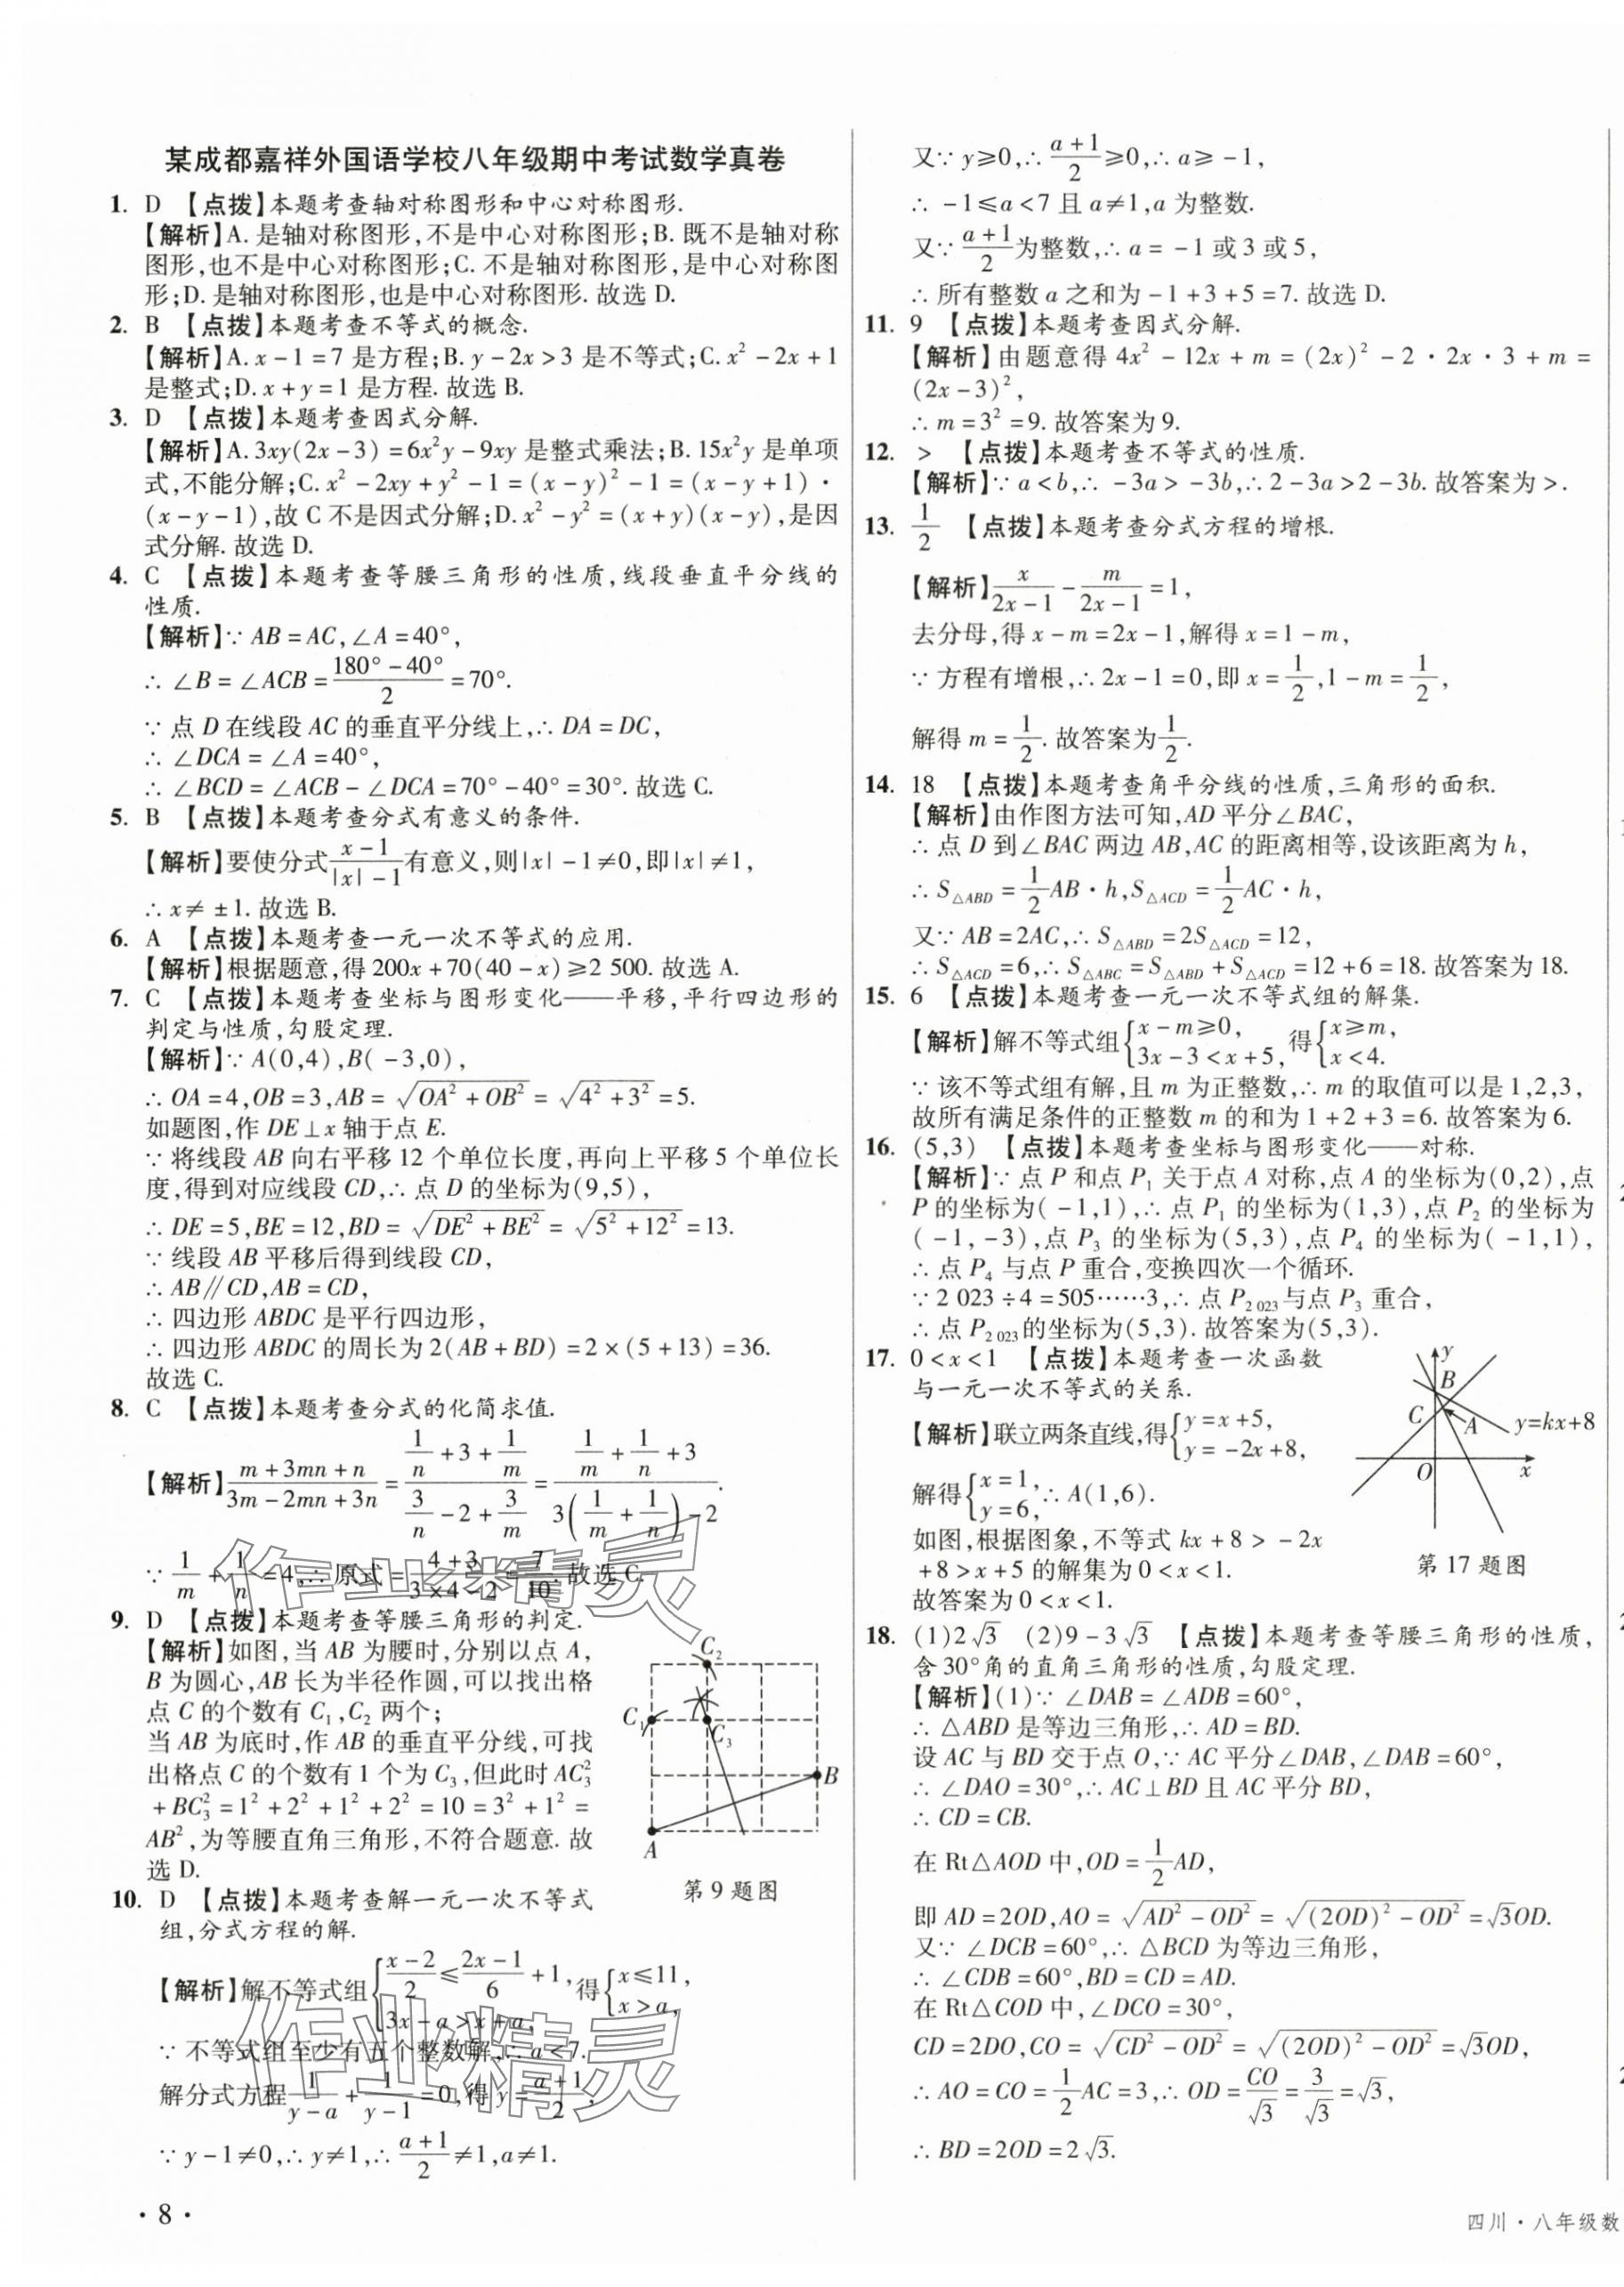 某成都嘉祥外国语学校八年级期中考试数学真卷
1. D 【点拨】本题考查轴对称图形和中心对称图形.
【解析】A. 是轴对称图形,不是中心对称图形;B. 既不是轴对称
图形,也不是中心对称图形;C. 不是轴对称图形,是中心对称图
形;D. 是轴对称图形,也是中心对称图形. 故选 D.
2. B 【点拨】本题考查不等式的概念.
【解析】A. x-1=7 是方程;B. y-2x>3 是不等式;C. x²-2x+1
是整式;D. x+y=1 是方程. 故选 B.
3. D 【点拨】本题考查因式分解.
【解析】A. 3xy(2x-3)=6x²y-9xy 是整式乘法;B. 15x²y 是单项
式,不能分解;C. x²-2xy+y²-1=(x-y)²-1=(x-y+1)·
(x-y-1),故 C 不是因式分解;D. x²-y²=(x+y)(x-y),是因
式分解. 故选 D.
4. C 【点拨】本题考查等腰三角形的性质,线段垂直平分线的
性质.
【解析】∵AB=AC,∠A=40°,
∴∠B=∠ACB=(180°-40°)/2=70°.
∵点 D 在线段 AC 的垂直平分线上,∴DA=DC,
∴∠DCA=∠A=40°,
∴∠BCD=∠ACB-∠DCA=70°-40°=30°. 故选 C.
5. B 【点拨】本题考查分式有意义的条件.
【解析】要使分式(x-1)/(|x|-1)有意义,则|x|-1≠0,即|x|≠1,
∴x≠±1. 故选 B.
6. A 【点拨】本题考查一元一次不等式的应用.
【解析】根据题意,得 200x+70(40-x)≥2 500. 故选 A.
7. C 【点拨】本题考查坐标与图形变化——平移,平行四边形的
判定与性质,勾股定理.
【解析】∵A(0,4),B(-3,0),
∴OA=4,OB=3,AB=√(OA²+OB²)=√(4²+3²)=5.
如题图,作 DE⊥x 轴于点 E.
∵将线段 AB 向右平移 12 个单位长度,再向上平移 5 个单位长
度,得到对应线段 CD,∴点 D 的坐标为(9,5),
∴DE=5,BE=12,BD=√(DE²+BE²)=√(5²+12²)=13.
∵线段 AB 平移后得到线段 CD,
∴AB∥CD,AB=CD,
∴四边形 ABDC 是平行四边形,
∴四边形 ABDC 的周长为 2(AB+BD)=2×(5+13)=36.
故选 C.
8. C 【点拨】本题考查分式的化简求值.
【解析】(m+3mn+n)/(3m-2mn+3n)=(1/n+3+1/m)/(3/n-2+3/m)=(1/m+1/n+3)/(3(1/m+1/n)-2).
∵1/m+1/n=4,∴原式=(4+3)/(3×4-2)=7/10. 故选 C.
9. D 【点拨】本题考查等腰三角形的判定.
【解析】如图,当 AB 为腰时,分别以点 A,
B 为圆心,AB 长为半径作圆,可以找出格
点 C 的个数有 C₁,C₂ 两个;
当 AB 为底时,作 AB 的垂直平分线,可找
出格点 C 的个数有 1 个为 C₃,但此时 AC₃²
+BC₃²=1²+2²+1²+2²=10=3²+1²=
AB²,为等腰直角三角形,不符合题意. 故
选 D.
C₂
C₁
C₃
B
A
第 9 题图
10. D 【点拨】本题考查解一元一次不等式
组,分式方程的解.
【解析】解不等式组{(x-2)/2≤(2x-1)/6+1, 3x-a>x+a, 得{x≤11, x>a,
∵不等式组至少有五个整数解,∴a<7.
解分式方程1/(y-a)+1/(y-1)=0,得 y=(a+1)/2,
∵y-1≠0,∴y≠1,∴(a+1)/2≠1,a≠1.
· 8 ·
又∵y≥0,∴(a+1)/2≥0,∴a≥-1,
∴-1≤a<7 且 a≠1,a 为整数.
又∵(a+1)/2为整数,∴a=-1 或 3 或 5,
∴所有整数 a 之和为-1+3+5=7. 故选 D.
11. 9 【点拨】本题考查因式分解.
【解析】由题意得 4x²-12x+m=(2x)²-2·2x·3+m=
(2x-3)²,
∴m=3²=9. 故答案为 9.
12. > 【点拨】本题考查不等式的性质.
【解析】∵a<b,∴-3a>-3b,∴2-3a>2-3b. 故答案为>.
13. 1/2 【点拨】本题考查分式方程的增根.
【解析】x/(2x-1)-m/(2x-1)=1,
去分母,得 x-m=2x-1,解得 x=1-m,
∵方程有增根,∴2x-1=0,即 x=1/2,1-m=1/2,
解得 m=1/2. 故答案为1/2.
14. 18 【点拨】本题考查角平分线的性质,三角形的面积.
【解析】由作图方法可知,AD 平分∠BAC,
∴点 D 到∠BAC 两边 AB,AC 的距离相等,设该距离为 h,
∴S△ABD=1/2AB·h,S△ACD=1/2AC·h,
又∵AB=2AC,∴S△ABD=2S△ACD=12,
∴S△ACD=6,∴S△ABC=S△ABD+S△ACD=12+6=18. 故答案为 18.
15. 6 【点拨】本题考查一元一次不等式组的解集.
【解析】解不等式组{x-m≥0, 3x-3<x+5, 得{x≥m, x<4.
∵该不等式组有解,且 m 为正整数,∴m 的取值可以是 1,2,3,
故所有满足条件的正整数 m 的和为 1+2+3=6. 故答案为 6.
16. (5,3) 【点拨】本题考查坐标与图形变化——对称.
【解析】∵点 P 和点 P₁ 关于点 A 对称,点 A 的坐标为(0,2),点
P 的坐标为(-1,1),∴点 P₁ 的坐标为(1,3),点 P₂ 的坐标为
(-1,-3),点 P₃ 的坐标为(5,3),点 P₄ 的坐标为(-1,1),
∴点 P₄ 与点 P 重合,变换四次一个循环.
∵2 023÷4=505……3,∴点 P₂ ₀₂₃与点 P₃ 重合,
∴点 P₂ ₀₂₃的坐标为(5,3). 故答案为(5,3).
17. 0<x<1 【点拨】本题考查一次函数
与一元一次不等式的关系.
【解析】联立两条直线,得{y=x+5, y=-2x+8,
解得{x=1, y=6, ∴A(1,6).
如图,根据图象,不等式 kx+8>-2x
+8>x+5 的解集为 0<x<1.
故答案为 0<x<1.
y
B
C
A
y=kx+8
O
x
第 17 题图
18. (1)2√3 (2)9-3√3 【点拨】本题考查等腰三角形的性质,
含 30°角的直角三角形的性质,勾股定理.
【解析】(1)∵∠DAB=∠ADB=60°,
∴△ABD 是等边三角形,∴AD=BD.
设 AC 与 BD 交于点 O,∵AC 平分∠DAB,∠DAB=60°,
∴∠DAO=30°,∴AC⊥BD 且 AC 平分 BD,
∴CD=CB.
在 Rt△AOD 中,OD=1/2AD,
即 AD=2OD,AO=√(AD²-OD²)=√((2OD)²-OD²)=√3OD.
又∵∠DCB=60°,∴△BCD 为等边三角形,
∴∠CDB=60°,BD=CD=AD.
在 Rt△COD 中,∠DCO=30°,
CD=2DO,CO=√(CD²-OD²)=√((2OD)²-OD²)=√3OD,
∴AO=CO=1/2AC=3,∴OD=CO/√3=3/√3=√3,
∴BD=2OD=2√3.
四川·八年级数
作业精灵
作业精灵